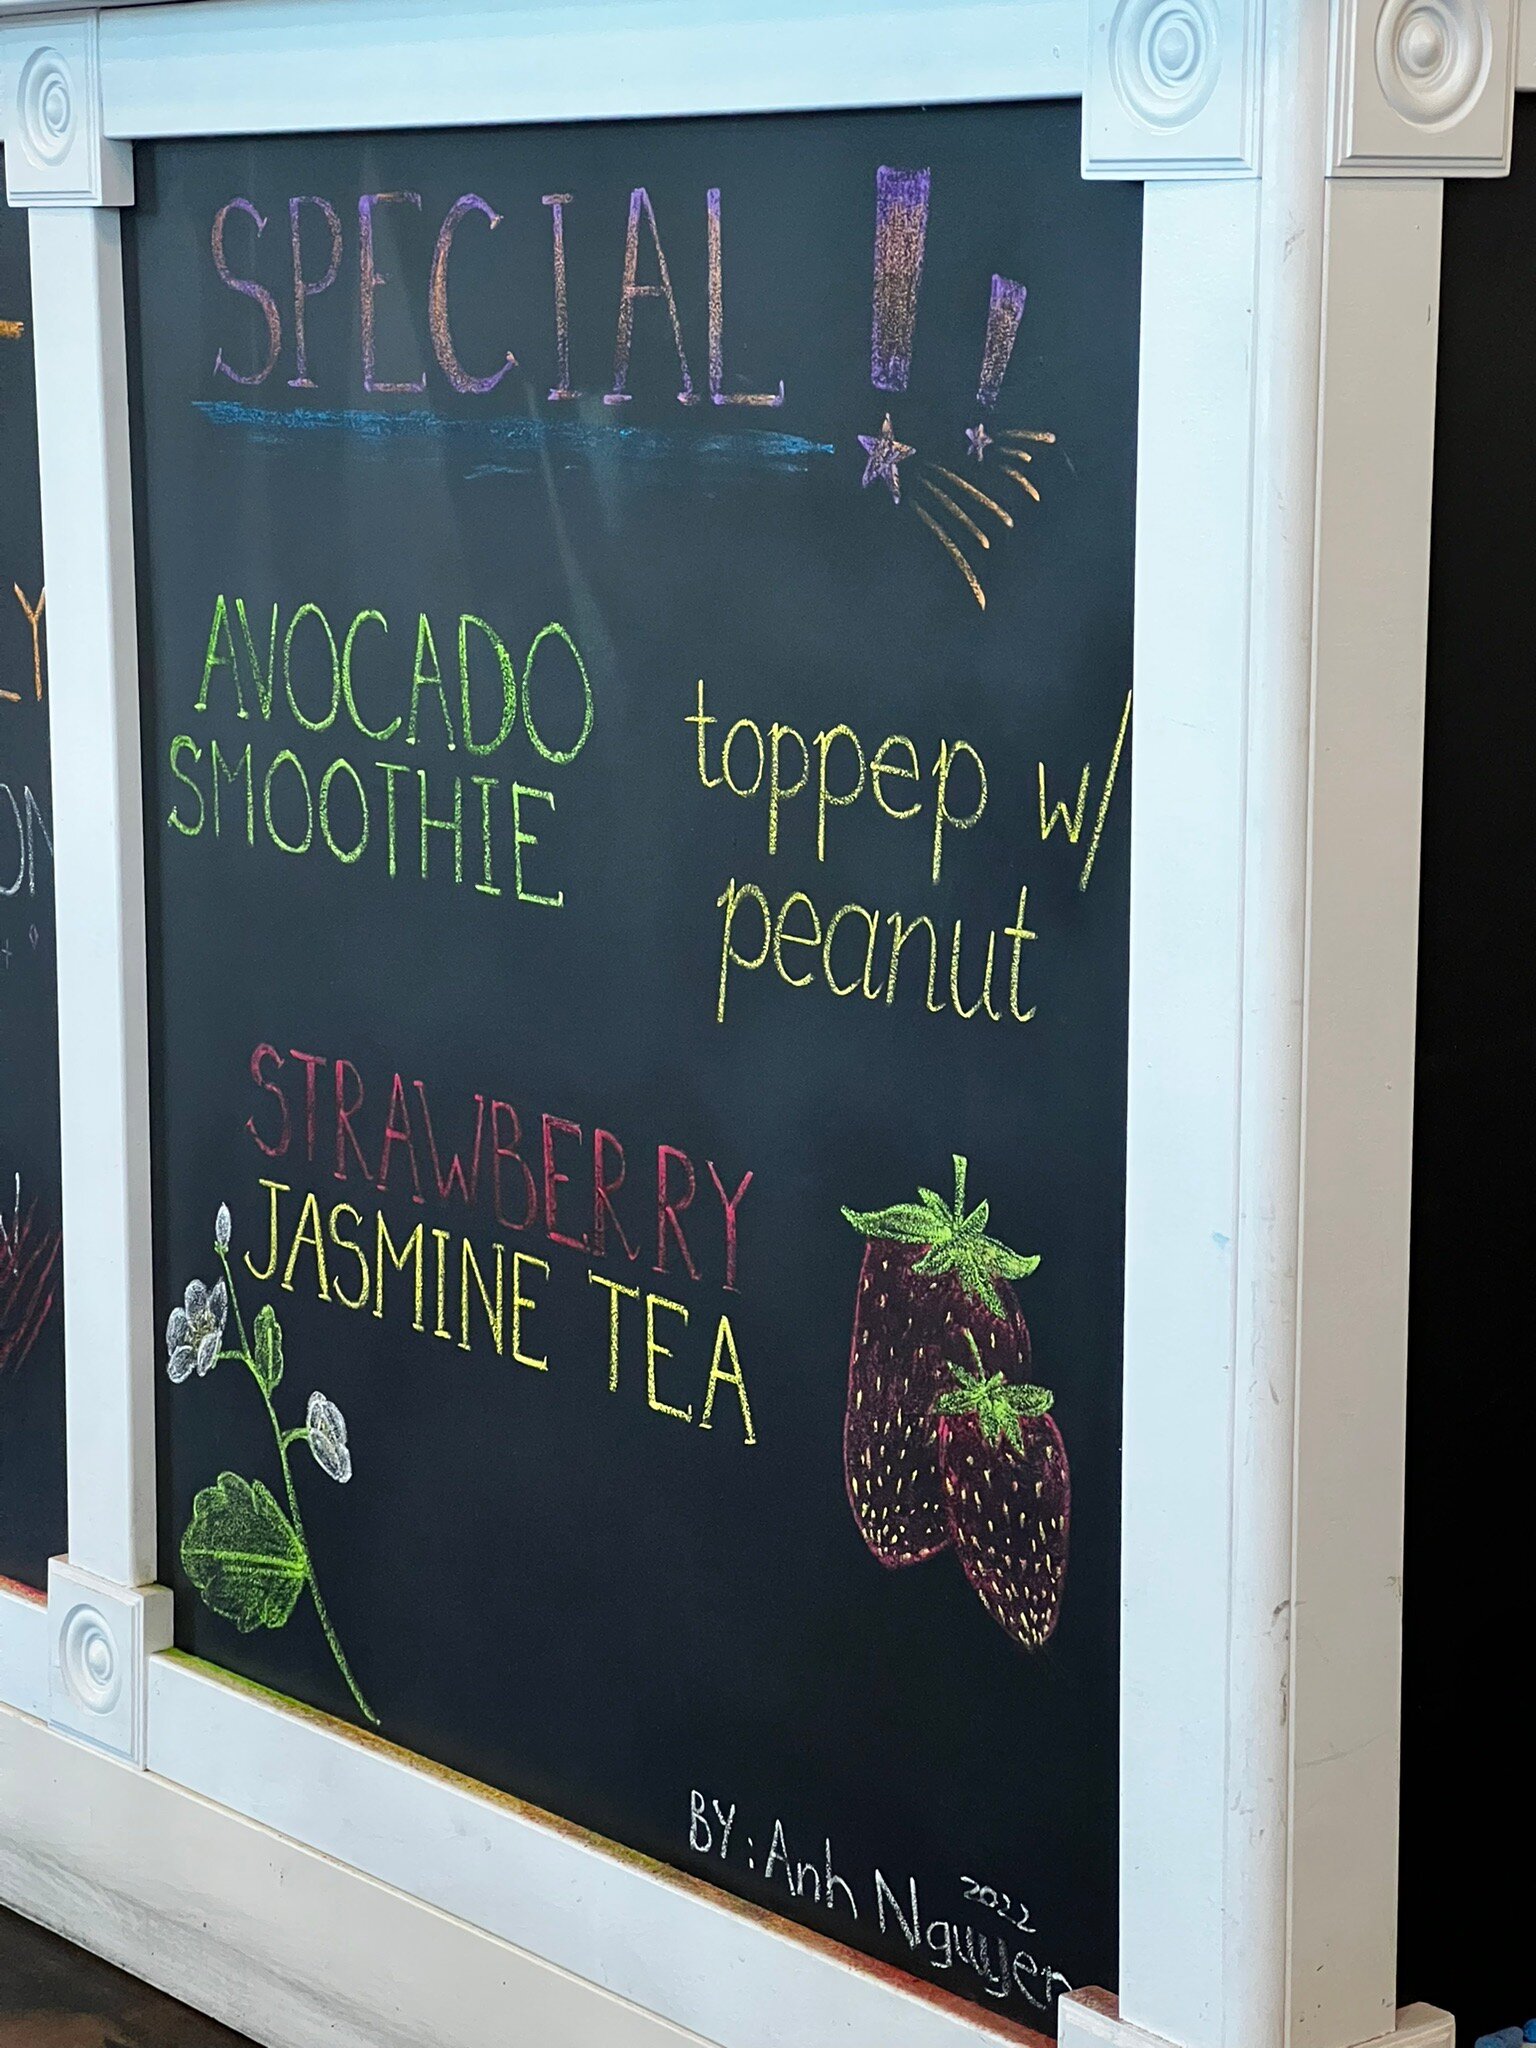 SPECIAL!!
AVOCADO
SMOOTHIE
toppep w/
peanut
STRAWBERRY
JASMINE TEA
BY: Anh Nguyen
2022
LY
ON